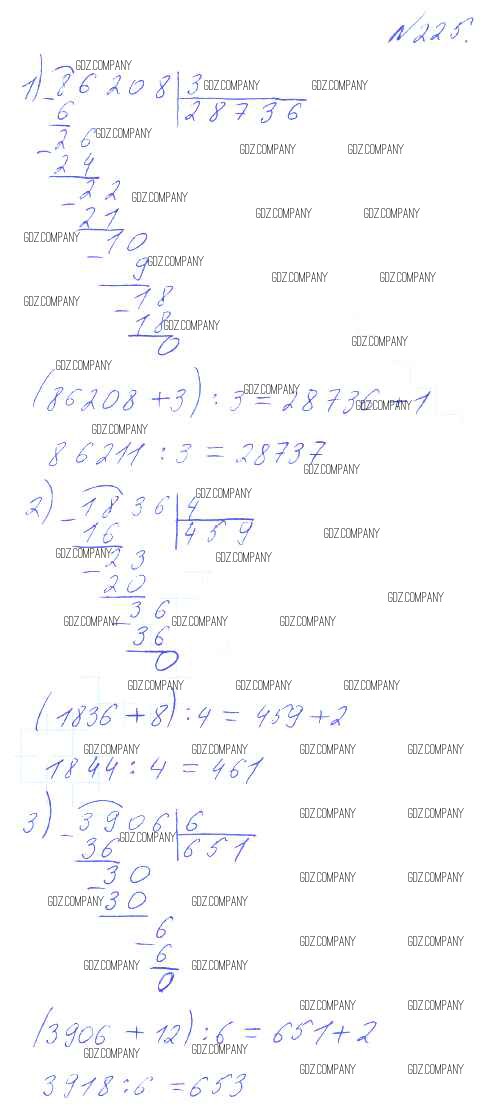 №225.
1) 86208 | 3
28736
6
- 26
24
- 22
21
- 10
9
- 18
18
0
(86208 + 3) : 3 = 28736 + 1
86211 : 3 = 28737
2) - 1836 | 4
16 | 459
- 23
20
- 36
36
0
(1836 + 8) : 4 = 459 + 2
1844 : 4 = 461
3) - 3906 | 6
36 | 651
- 30
30
- 6
6
0
(3906 + 12) : 6 = 651 + 2
3918 : 6 = 653
GDZ.COMPANY